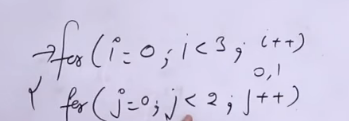 →for(i=0; i<3; i++)
0,1
for(j=0; j<2; j++)